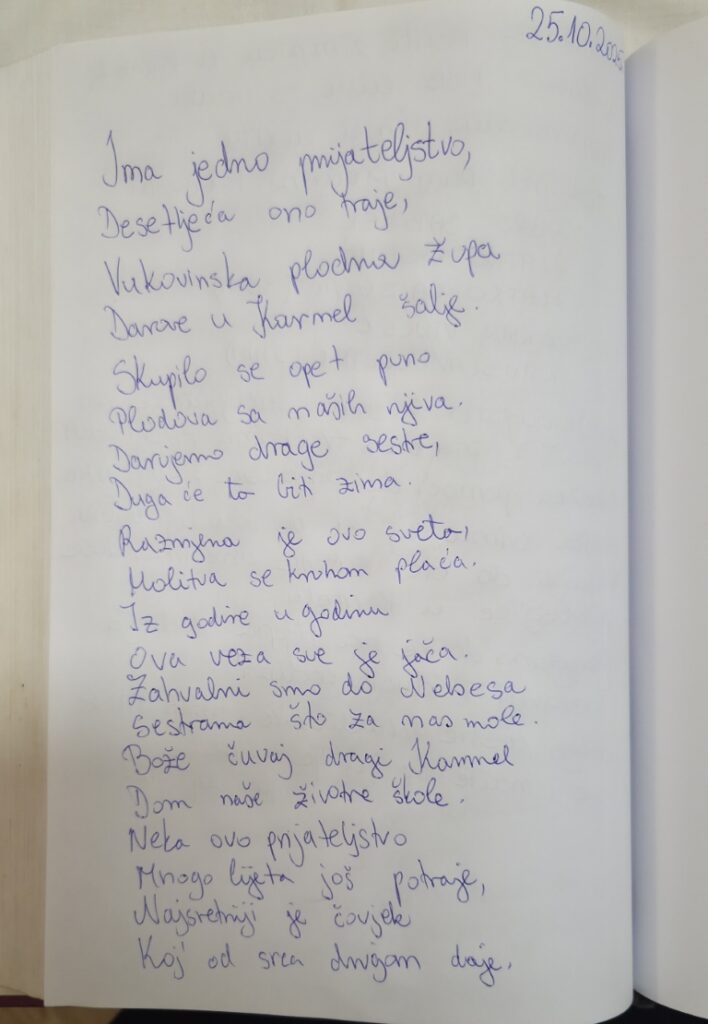 25.10.2025
Ima jedno prijateljstvo,
Desetljeća ono traje,
Vukovinska plodna župa
Darove u Karmel šalje.
Skupilo se opet puno
Plodova sa naših njiva.
Darujemo drage sestre,
Duga će to biti zima.
Razmjena je ovo sveta,
Molitva se kruhom plaća.
Iz godine u godinu
Ova veza sve je jača.
Zahvalni smo do Nebesa
Sestrama što za nas mole.
Bože čuvaj dragi Karmel
Dom naše životne škole.
Neka ovo prijateljstvo
Mnogo ljeta još potraje,
Najsretniji je čovjek
Koj' od srca drugom daje.